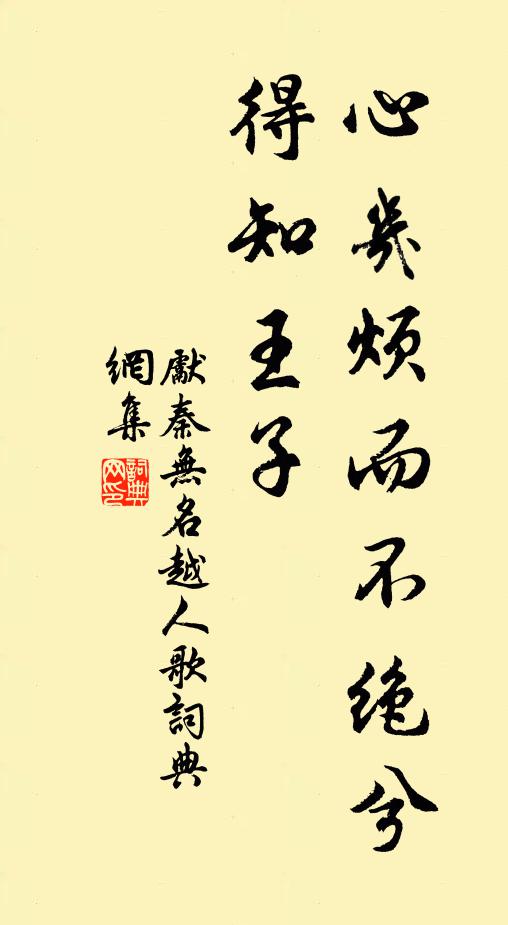 心幾煩而不绝兮
得知王子
獻秦無名越人歌詞典
網集
詞典
网印